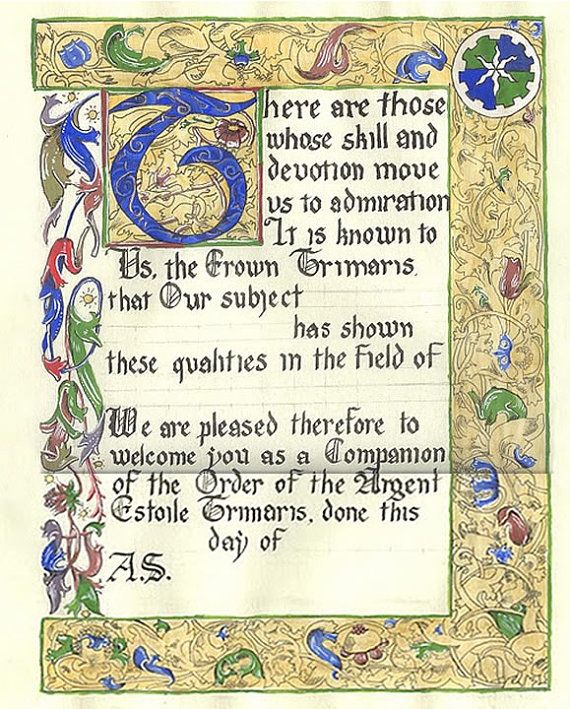 There are those
whose skill and
devotion move
us to admiration
It is known to
Us, the Crown Trimaris,
that Our subject
has shown
these qualities in the field of
We are pleased therefore to
welcome you as a Companion
of the Order of the Argent
Estoile Trimaris, done this
day of
A.S.